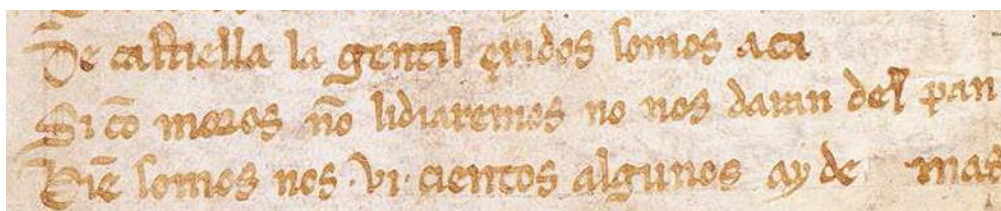 De castiella la gentil exidos somos aca
Si cõ moros nõ lidiaremos no nos daran del pan
Biẽ somos nos .vi. cientos algunos ay de mas